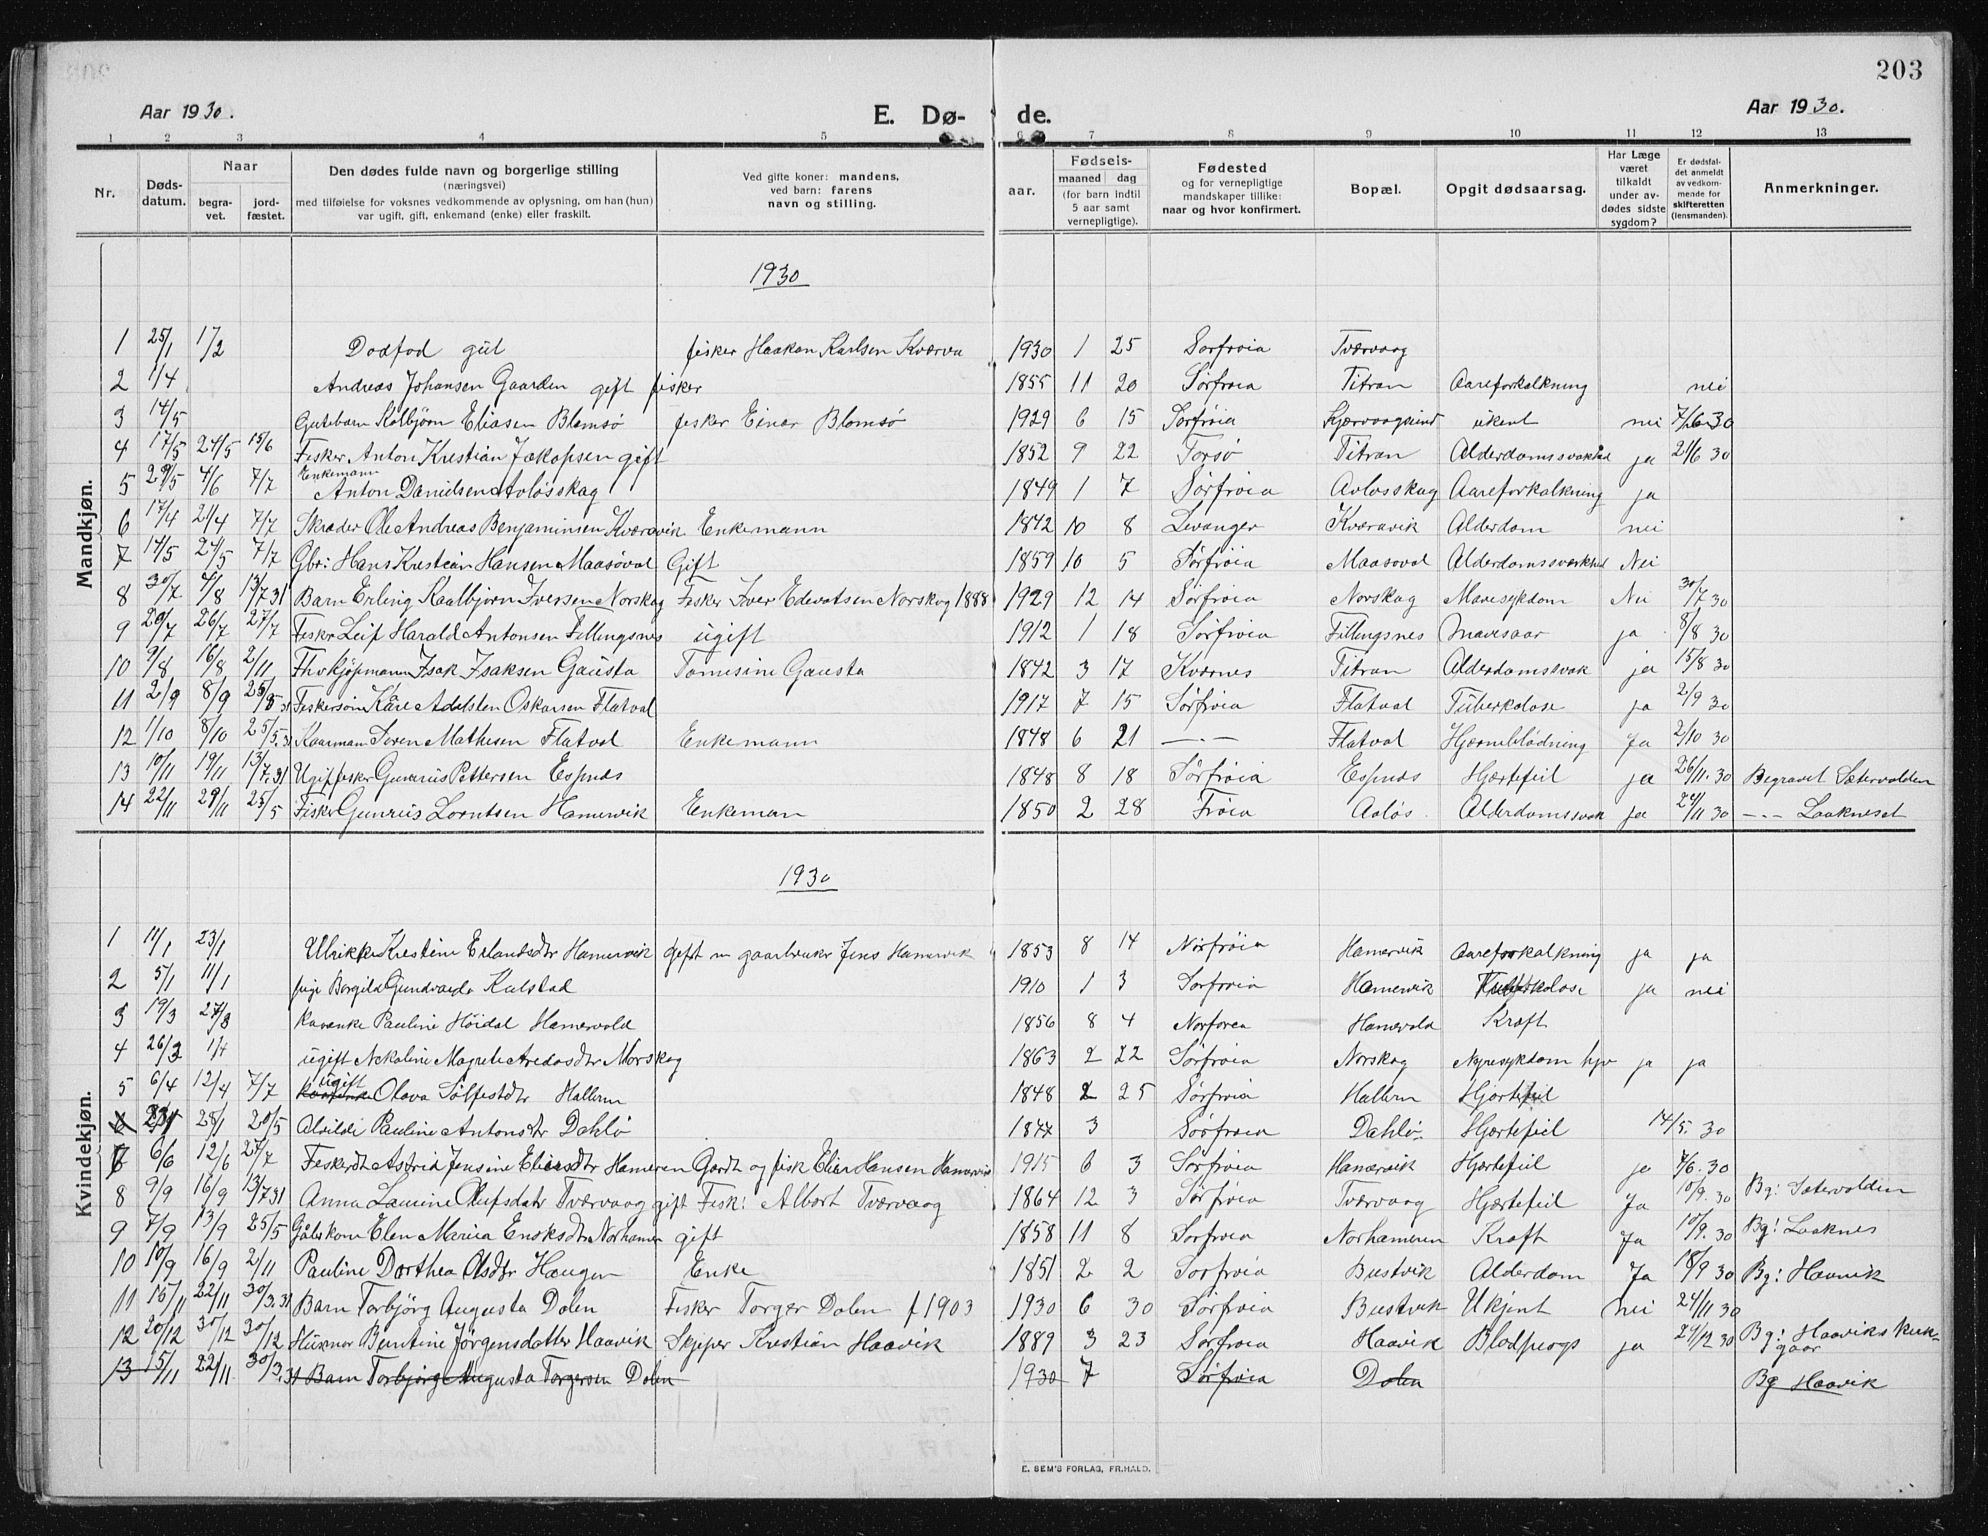 203
Aar 1930. E. Dø- de. Aar 1930.
1 2 3 4 5 6 7 8 9 10 11 12 13
Nr.
Døds-
datum.
Naar
begra-
vet.
jord-
fæstet.
Den dødes fulde navn og borgerlige stilling
(næringsvei)
med tilføielse for voksnes vedkommende av oplysning, om han (hun)
var ugift, gift, enkemand (enke) eller fraskilt.
Ved gifte koner: mandens,
ved barn: farens
navn og stilling.
aar.
Fødsels-
maaned dag
(for barn indtil
5 aar samt
vernepligtige).
Fødested
og for vernepligtige
mandskaper tillike:
naar og hvor konfirmert.
Bopæl.
Opgit dødsaarsag.
Har Læge
været
tilkaldt
under av-
dødes sidste
sygdom?
Er dødsfal-
det anmeldt
av vedkom-
mende for
skifteretten
(lensmanden).
Anmerkninger.
Mandkjøn.
1930
1 25/1 1/2 Dodfod gut fisker Haakon Karlsen Kværva 1930 1 25 Sorfroia Tværvaag
2 1/4 Andreas Johansen Gaarden gift fisker 1855 11 20 Sörfroia Titran Aareforkalkning nei
3 14/5 Gutebarn Kolbjörn Eliasen Blomsø fisker Einar Blomsø 1929 6 15 Sorfröia Kjærvaagsund ukent nei 7/6 30
4 17/5 24/5 15/6 Fisker Anton Kristian Jakopsen gift 1852 9 22 Torsö Titran Alderdomssvakhed ja 21/6 30
5 29/5 4/6 7/7 Enkemann Anton Danielsen Avløsskag 1849 1 7 Sörfröia Avlosskag Aareforkalkning ja
6 17/4 21/4 7/7 Skræder Ole Andreas Benjaminsen Kværavik Enkemann 1842 10 8 Levanger Kværavik Alderdom nei
7 14/5 24/5 7/7 Gbr: Hans Kristian Hansen Maasöval Gift 1859 10 5 Sörfröia Maasoval Alderdomssvækhed Nei
8 30/7 4/8 13/7 31 Barn Erling Kaalbjorn Iversen Norskag Fisker Iver Edevatsen Norskag 1888 1929 12 14 Sörfröia Norskag Mavesykdom Nei 30/7 30
9 20/7 26/7 27/7 Fisker Leif Harald Antonsen Fillingsnes ugift 1912 1 18 Sörfroia Fillingsnes Mavesaar ja 8/8 30
10 9/8 16/8 2/11 Isak Isaksen Gausta Tomesine Gausta 1842 3 17 Kværnes Titran Alderdomssvak ja 15/8 30
11 2/9 8/9 25/5 31 Fiskersön Kåre Adelsten Oskarsen Flatval 1917 7 15 Sörfroia Flatval Tuberkolose ja 2/9 30
12 1/10 8/10 25/5.31 Kaarmann Soren Mathesen Flatval Enkemann 1848 6 21 — . — Flatval Hjerneblödning Ja 2/10 30
13 10/11 19/11 13/7.31 Ugif fisker Gunerius Pettersen Espnes 1848 8 18 Sörfröia Espnes Hjertefeil ja 26/11.30 Begravet Sætervolden
14 22/11 29/11 25/5 Fisker Gunerius Lorntsen Hamervik Enkeman 1850 2 28 Fröia Avlös Alderdomssvak ja 24/11 30 — . — Laakneset
Kvindekjøn.
1930
1 11/1 23/1 Ulrikke Kristine Erlandsdtr Hamervik gift m gaarbruker Jens Hamervik 1853 8 14 Norfröia Hamervik Aareforkalkning ja ja
2 5/1 11/1 pige Borgild Gundvarda Kulstad 1910 1 3 Sorfroia Hamervik Tuberkolose ja nei
3 19/3 27/3 Pauline Höidal Hamervold 1856 8 4 Norforea Hamervold Kræft
4 26/3 1/4 ugift Nekoline Magrete Norskag 1863 2 22 Sörfroia Norskag Nyresykdom ja ja
5 6/4 12/4 7/7 ugift Olava Sölfestdtr Hallern 1848 2 25 Sörfröia Hallern Hjertefeil
6 28/1 20/5 Alvilde Pauline Antonsdtr Dahlö 1844 3 Sörfroia Dahlö Hjertefeil 14/5. 30
7 6/6 12/6 27/7 Fiskerdt Astrid Jensine Eliasdtr Hameren Gardt og fisk Elias Hansen Hamervik 1915 6 3 Sörfroia Hamervik Hjertefeil ja 7/6.30
8 9/9 16/9 13/7 31 Anna Lauvine Olufsdatr Tværvaag gift Fisk: Albert Tværvaag 1864 12 3 Sörfroia Tværvaag Hjertefeil Ja 10/9.30 Bg: Sætervolden
9 7/9 13/9 25/5 Elen Marica Norhamer gift 1858 11 8 Sorfroia Norhameren Kræft Ja 10/9.30 Bg: Laaknes
10 10/9 16/9 2/11 Pauline Dorthea Olsdtr Haugen Enke 1851 2 2 Sorfroia Bustvik Alderdom Ja 18/9 30 Bg: Haavik
11 15/11 22/11 30/3.31 Barn Torbjörg Augusta Dolen Fisker Torger Dolen f 1903 1930 6 30 Sörfroia Bustvik Ukjent nei 24/11 30
12 20/12 30/12 30/12 Husmor Berntine Jörgensdatter Haavik Skipper Kristian Haavik 1889 3 23 Sorfroia Haavik Blodprop ja 24/12 30 Bg: Haaviks kirk-
gaar
13 15/11 22/11 30/3.31 Barn Torbjörg Augusta Torgersen Dolen 1930 7 Sörfroia Dolen Bg Haavik
E. SEM'S FORLAG, FR.HALD.